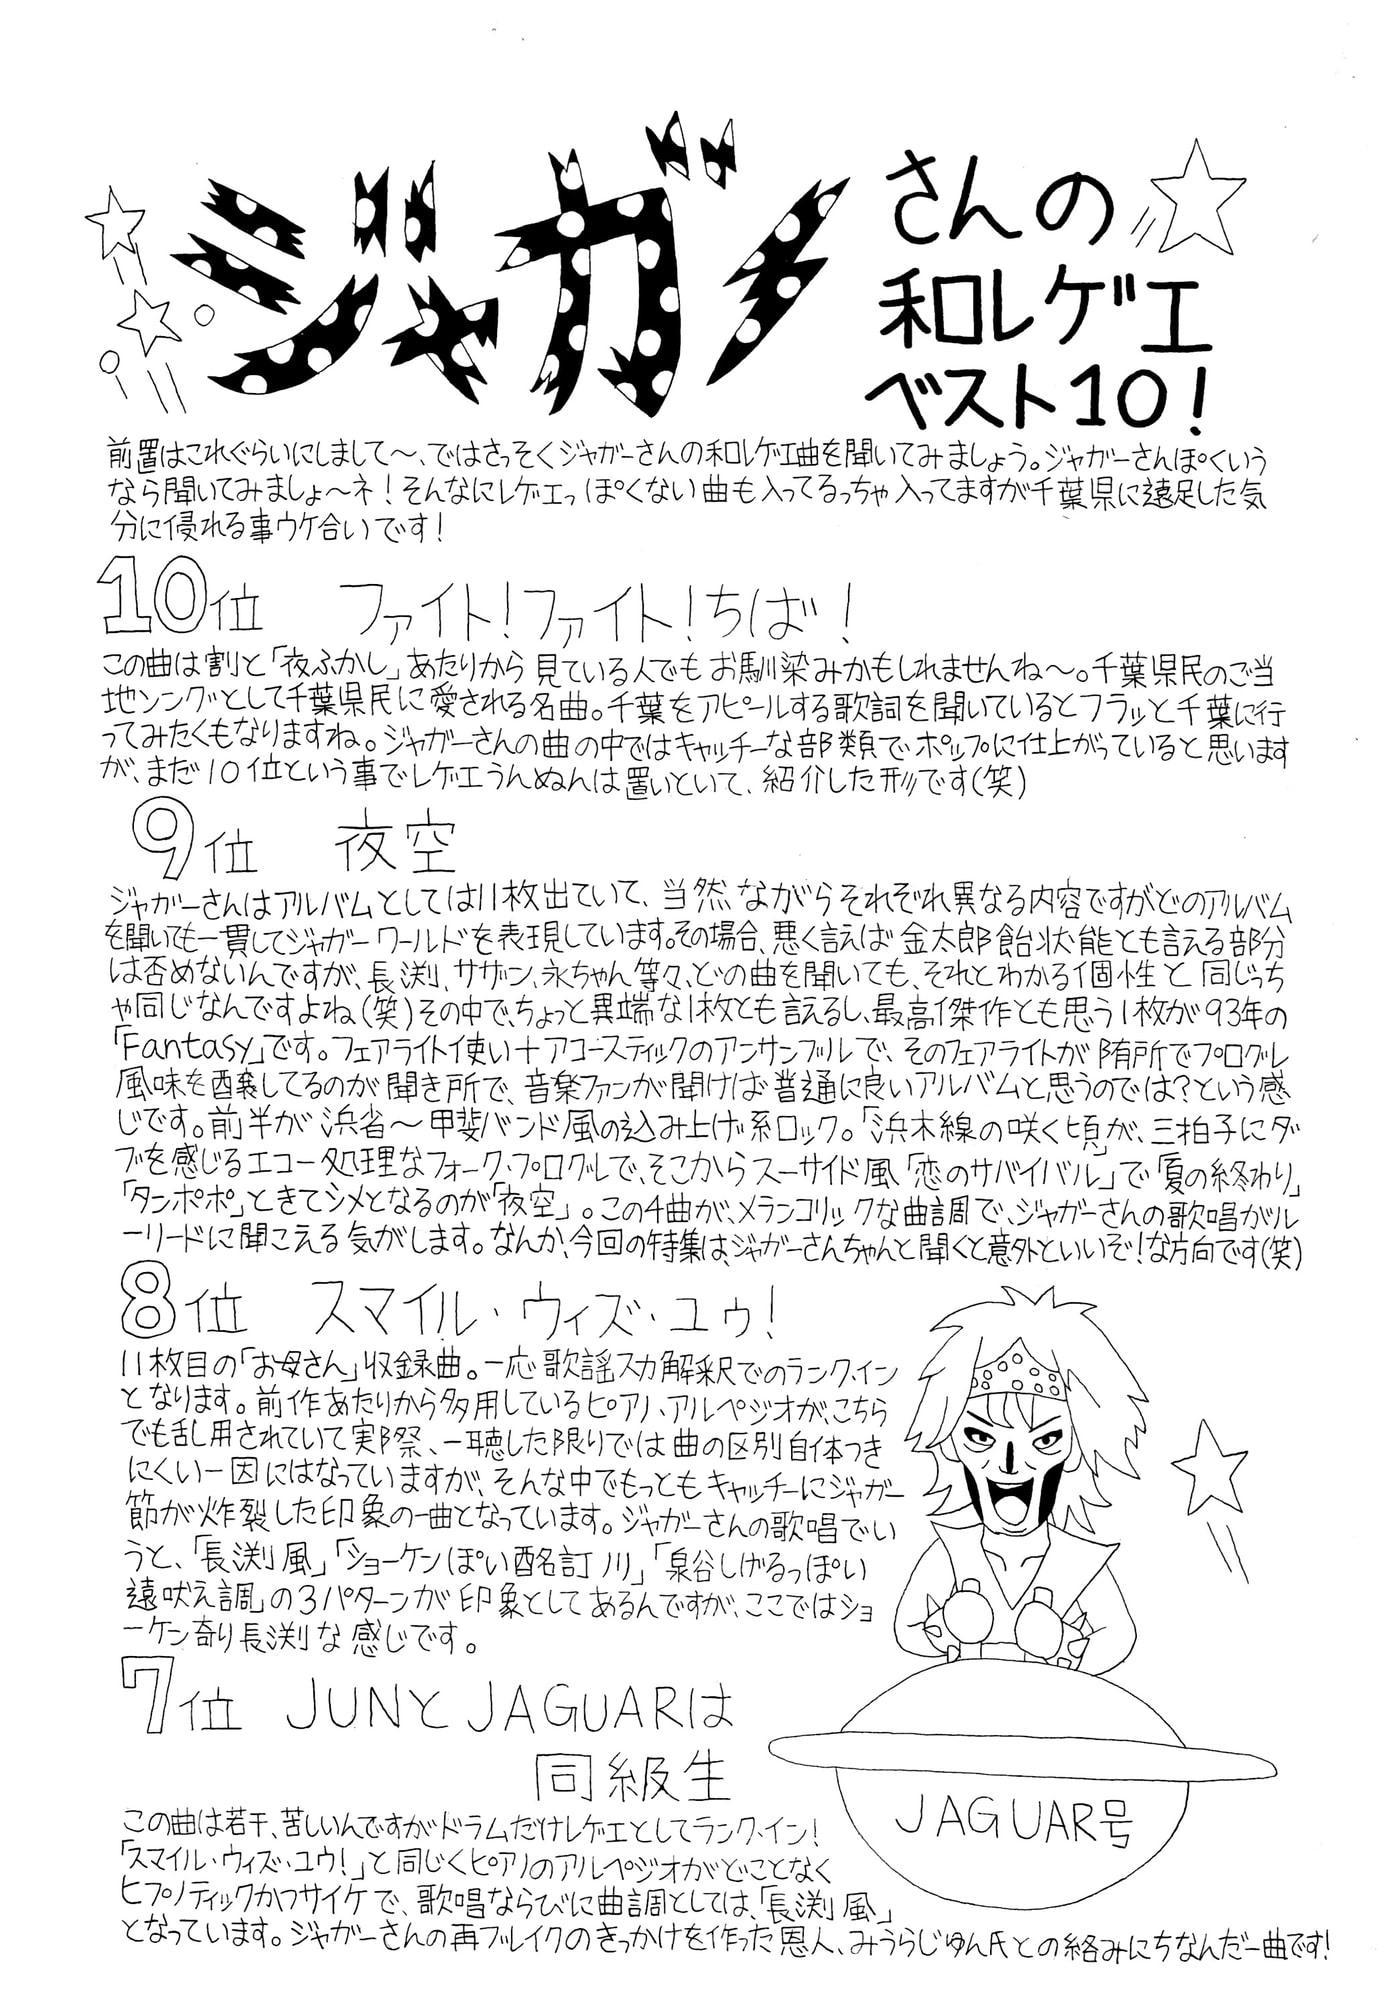 ジャガー
さんの
和レゲエ
ベスト10!
前置はこれぐらいにしまして〜、ではさっそくジャガーさんの和レゲエ曲を聞いてみましょう。ジャガーさんぽくいう
なら聞いてみましょ〜ネ!そんなにレゲエっぽくない曲も入ってるっちゃ入ってますが千葉県に遠足した気
分に侵れる事ウケ合いです!
10位 ファイト!ファイト!ちば!
この曲は割と「夜ふかし」あたりから見ている人でもお馴染みかもしれませんね〜。千葉県民のご当
地ソングとして千葉県民に愛される名曲。千葉をアピールする歌詞を聞いているとフラッと千葉に行
ってみたくもなりますね。ジャガーさんの曲の中ではキャッチーな部類でポップに仕上がっていると思います
が、まだ10位という事でレゲエうんぬんは置いといて、紹介した形です(笑)
9位 夜空
ジャガーさんはアルバムとしては11枚出ていて、当然ながらそれぞれ異なる内容ですがどのアルバム
を聞いても一貫してジャガーワールドを表現しています。その場合、悪く言えば金太郎飴状態とも言える部分
は否めないんですが、長渕、サザン、永ちゃん等々、どの曲を聞いても、それとわかる個性と同じっち
ゃ同じなんですよね(笑)その中で、ちょっと異端な1枚とも言えるし、最高傑作とも思う1枚が93年の
「Fantasy」です。フェアライト使い+アコースティックのアンサンブルで、そのフェアライトが随所でプログレ
風味を醸してるのが聞き所で、音楽ファンが聞けば普通に良いアルバムと思うのでは?という感
じです。前半が浜省〜甲斐バンド風の込み上げ系ロック。「浜木綿の咲く頃」が、三拍子にダ
ブを感じるエコー処理なフォーク・プログレで、そこからスーサイド風「恋のサバイバル」で「夏の終わり」
「タンポポ」ときてシメとなるのが「夜空」。この4曲が、メランコリックな曲調で、ジャガーさんの歌唱がル
ーリードに聞こえる気がします。なんか、今回の特集は、ジャガーさんちゃんと聞くと意外といいぞ!な方向です(笑)
8位 スマイル・ウィズ・ユゥ!
11枚目の「お母さん」収録曲。一応歌謡スカ解釈でのランクイン
となります。前作あたりから多用しているピアノ・アルペジオが、こちら
でも乱用されていて実際、一聴した限りでは曲の区別自体つき
にくい一因にはなっていますが、そんな中でもっともキャッチーにジャガー
節が炸裂した印象の一曲となっています。ジャガーさんの歌唱でい
うと、「長渕風」「ショーケンぽい酩酊川」「泉谷しげるっぽい
遠吠え調」の3パターンが印象としてあるんですが、ここではショ
ーケン寄り長渕な感じです。
7位 JUNとJAGUARは
同級生
この曲は若干、苦しいんですがドラムだけレゲエとしてランクイン!
「スマイル・ウィズ・ユウ!」と同じくピアノのアルペジオがどことなく
ヒプノティックかつサイケで、歌唱ならびに曲調としては、「長渕風」
となっています。ジャガーさんの再ブレイクのきっかけを作った恩人、みうらじゅん氏との絡みにちなんだ一曲です!
JAGUAR号